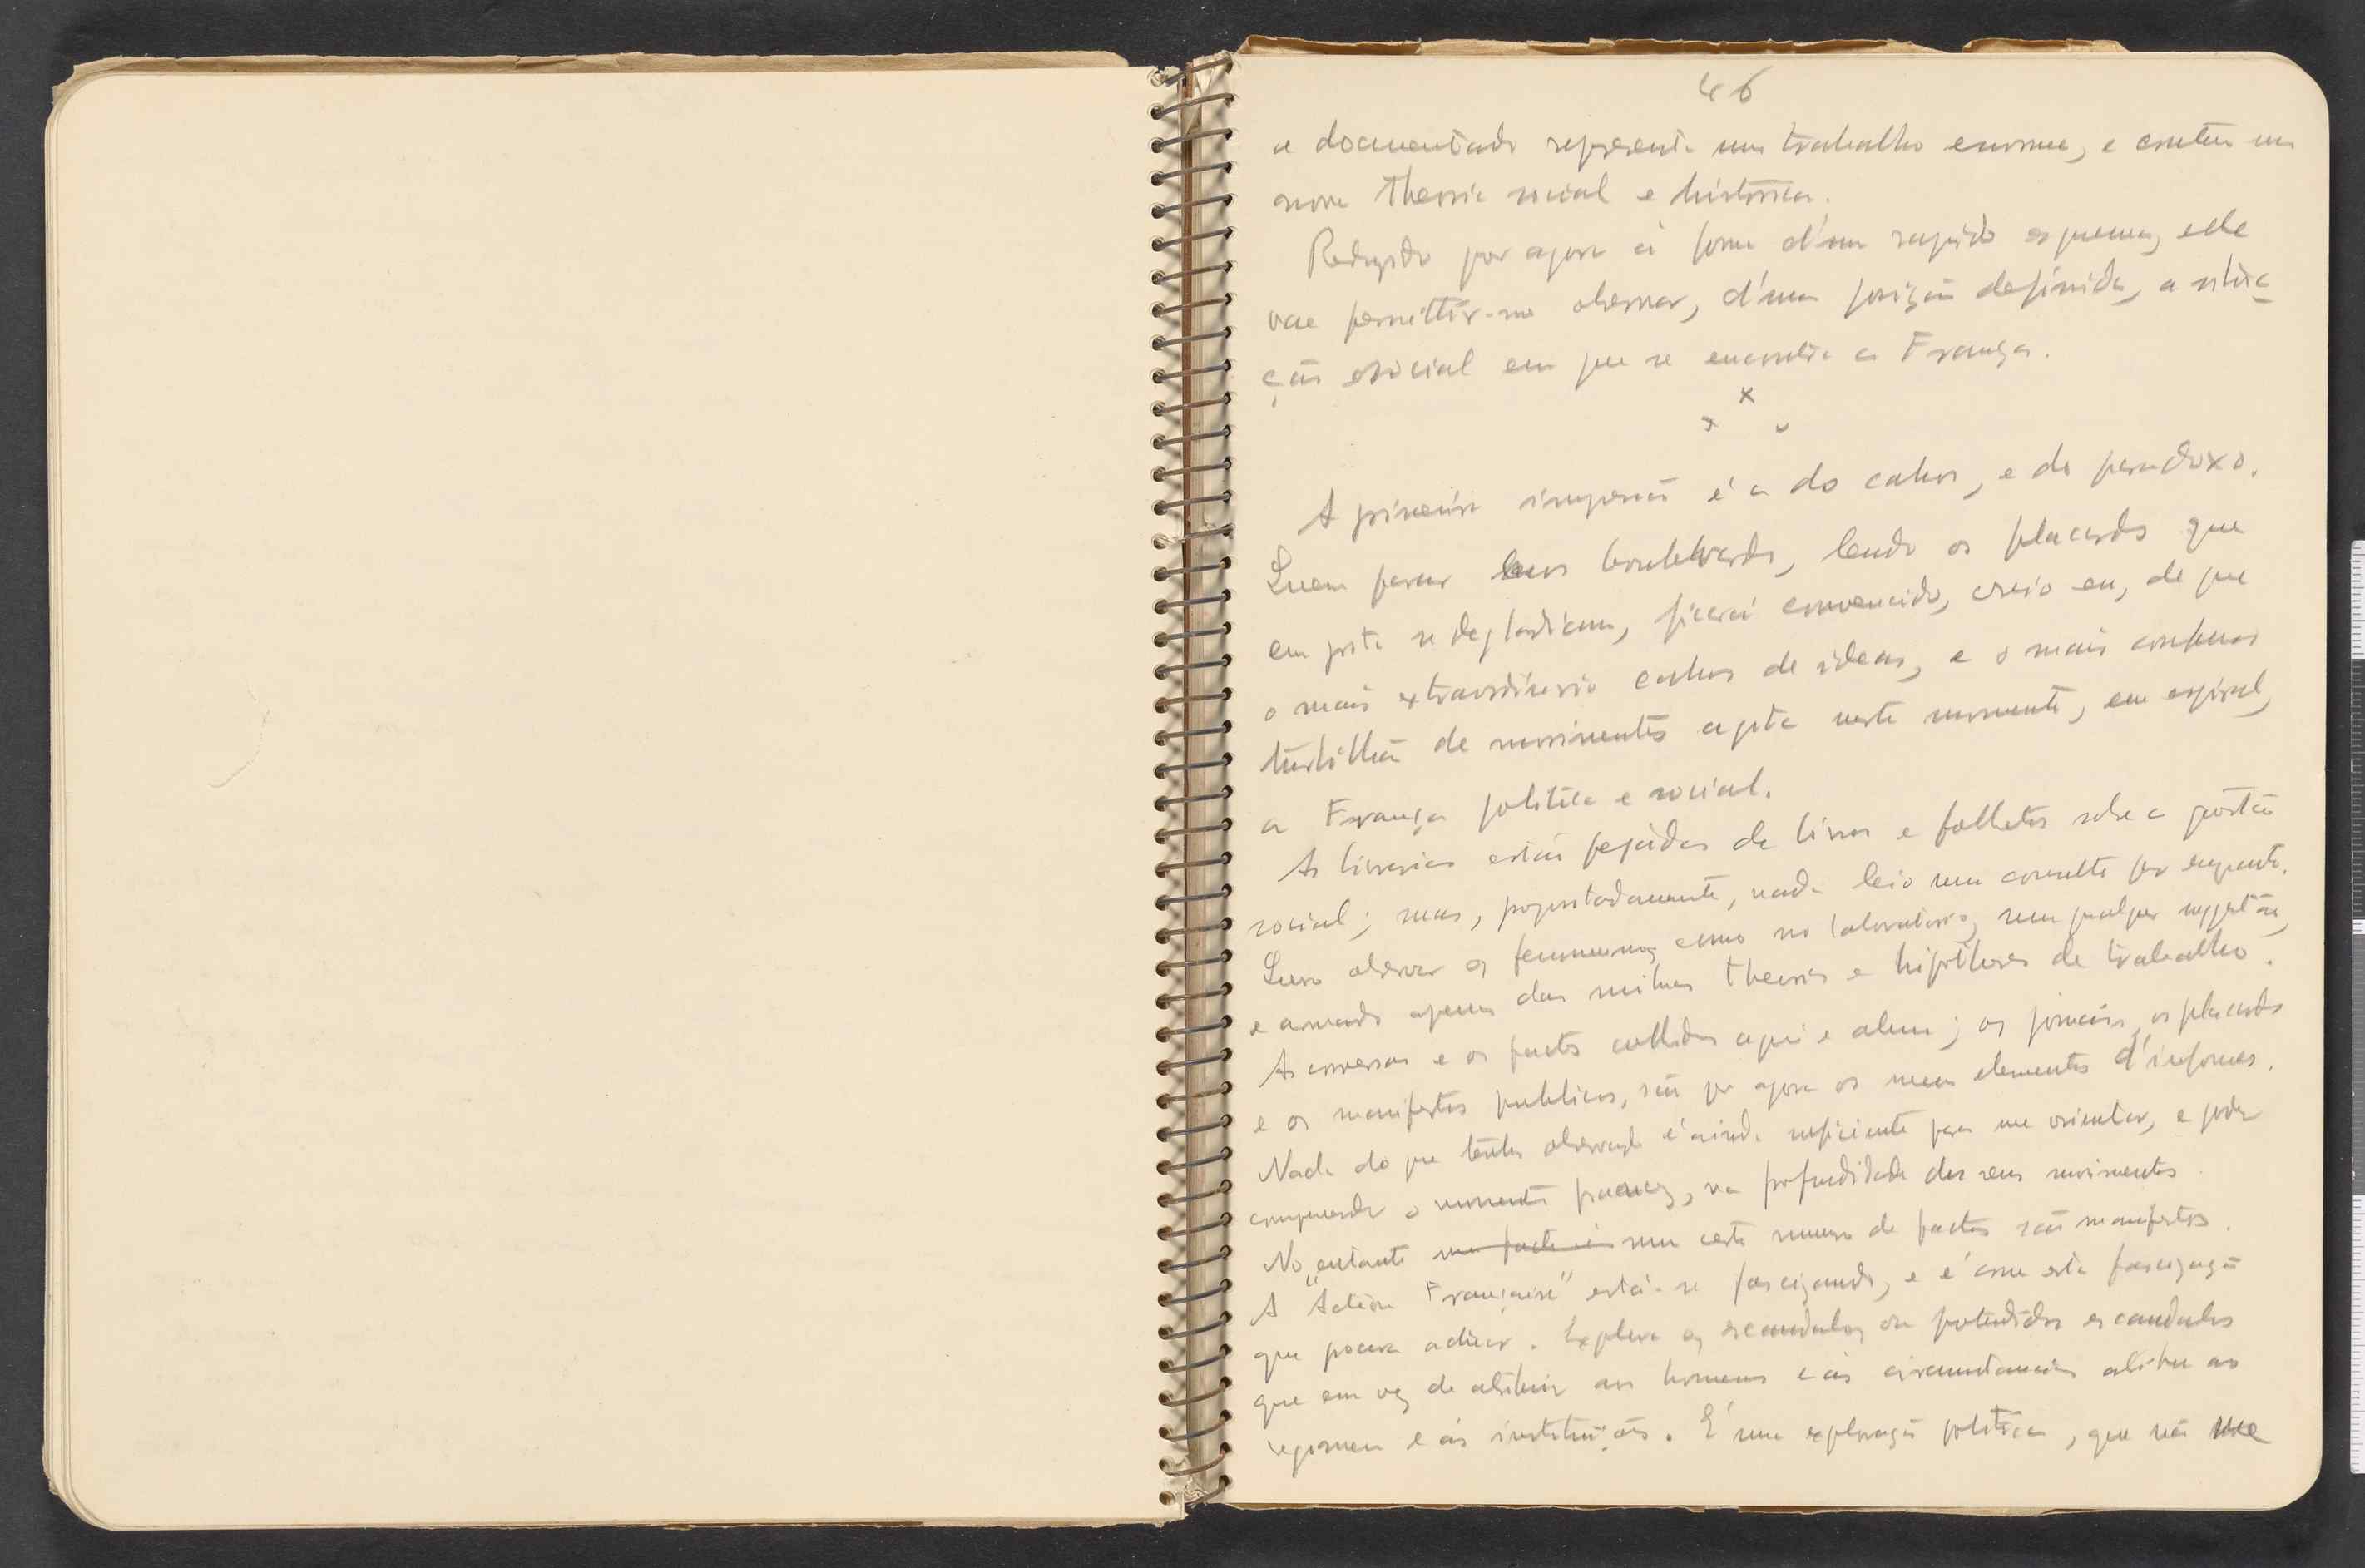 46
e documentado representa um trabalho enorme, e contém uma
nova theoria social e historica.
Reduzido por agora á forma d'um rapido esquema, elle
vae permittir-me observar, d'uma posição definida, a situa-
ção social em que se encontra a França.
x
x x
A primeira impressão é a do cahos, e do paradoxo.
Quem parar nos boulevards, lendo os placards que
em grita se degladiam, ficará convencido, creio eu, de que
o mais extraordinario cahos de ideas, e o mais confuso
turbilhão de movimentos agita neste momento, em espiral,
a França politica e social.
As livrarias estão pejadas de livros e folhetos sobre a questão
social; mas, propositadamente, nada leio nem consulto por emquanto.
Quero observar os fenomenos, como no laboratorio, sem qualquer suggestão,
e armado apenas das minhas theorias e hipotheses de trabalho.
As conversas e os factos colhidos aqui e alem; os jornaes, os placards
e os manifestos publicos, são por agora os meus elementos d'informação.
Nada do que tenho observado é ainda suficiente para me orientar, e poder
comprehender o momento francez, na profundidade dos seus movimentos.
No entanto um facto é um certo numero de factos são manifestos.
A "Action Française" está-se fascizando, e é com esta fascização
que procura actuar. Explora os escandalos ou pretendidos escandalos
que em vez de atribuir aos homens e ás circumstancias atribue ao
regimen e ás instituições. É uma exploração politica, que não me